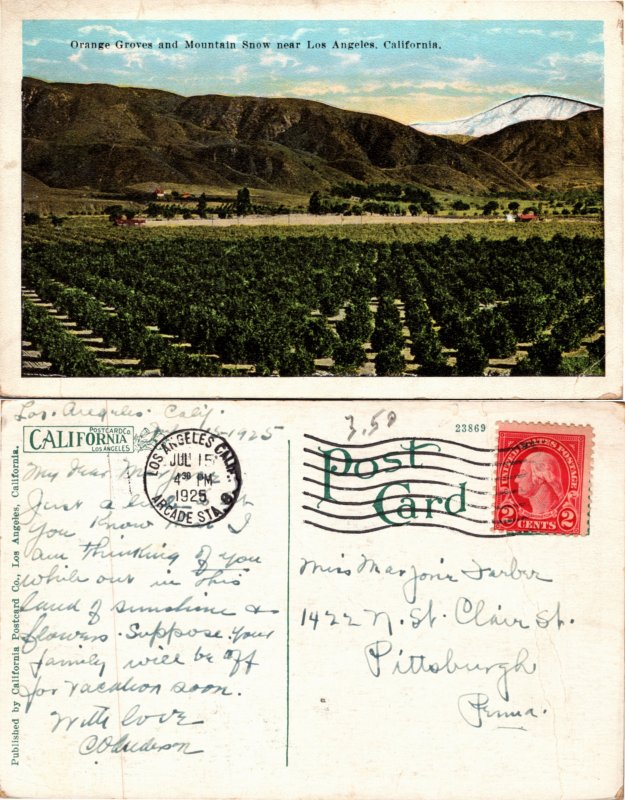 Orange Groves and Mountain Snow near Los Angeles, California.
Los. Angeles. Calif.
15-1925
CALIFORNIA
POSTCARD CO
LOS ANGELES
LOS ANGELES CALIF.
JUL 15
4 30 PM
1925
ARCADE STA.
3.50
23869
Post
Card
UNITED STATES POSTAGE
2 CENTS 2
My Dear
Just a
you know I
am thinking of you
while out in this
land of sunshine &
flowers. Suppose your
family will be off
for vacation soon.
With love
C.O. Anderson
Miss Marjorie Farber
1422 N. St. Clair St.
Pittsburgh
Penna.
Published by California Postcard Co., Los Angeles, California.